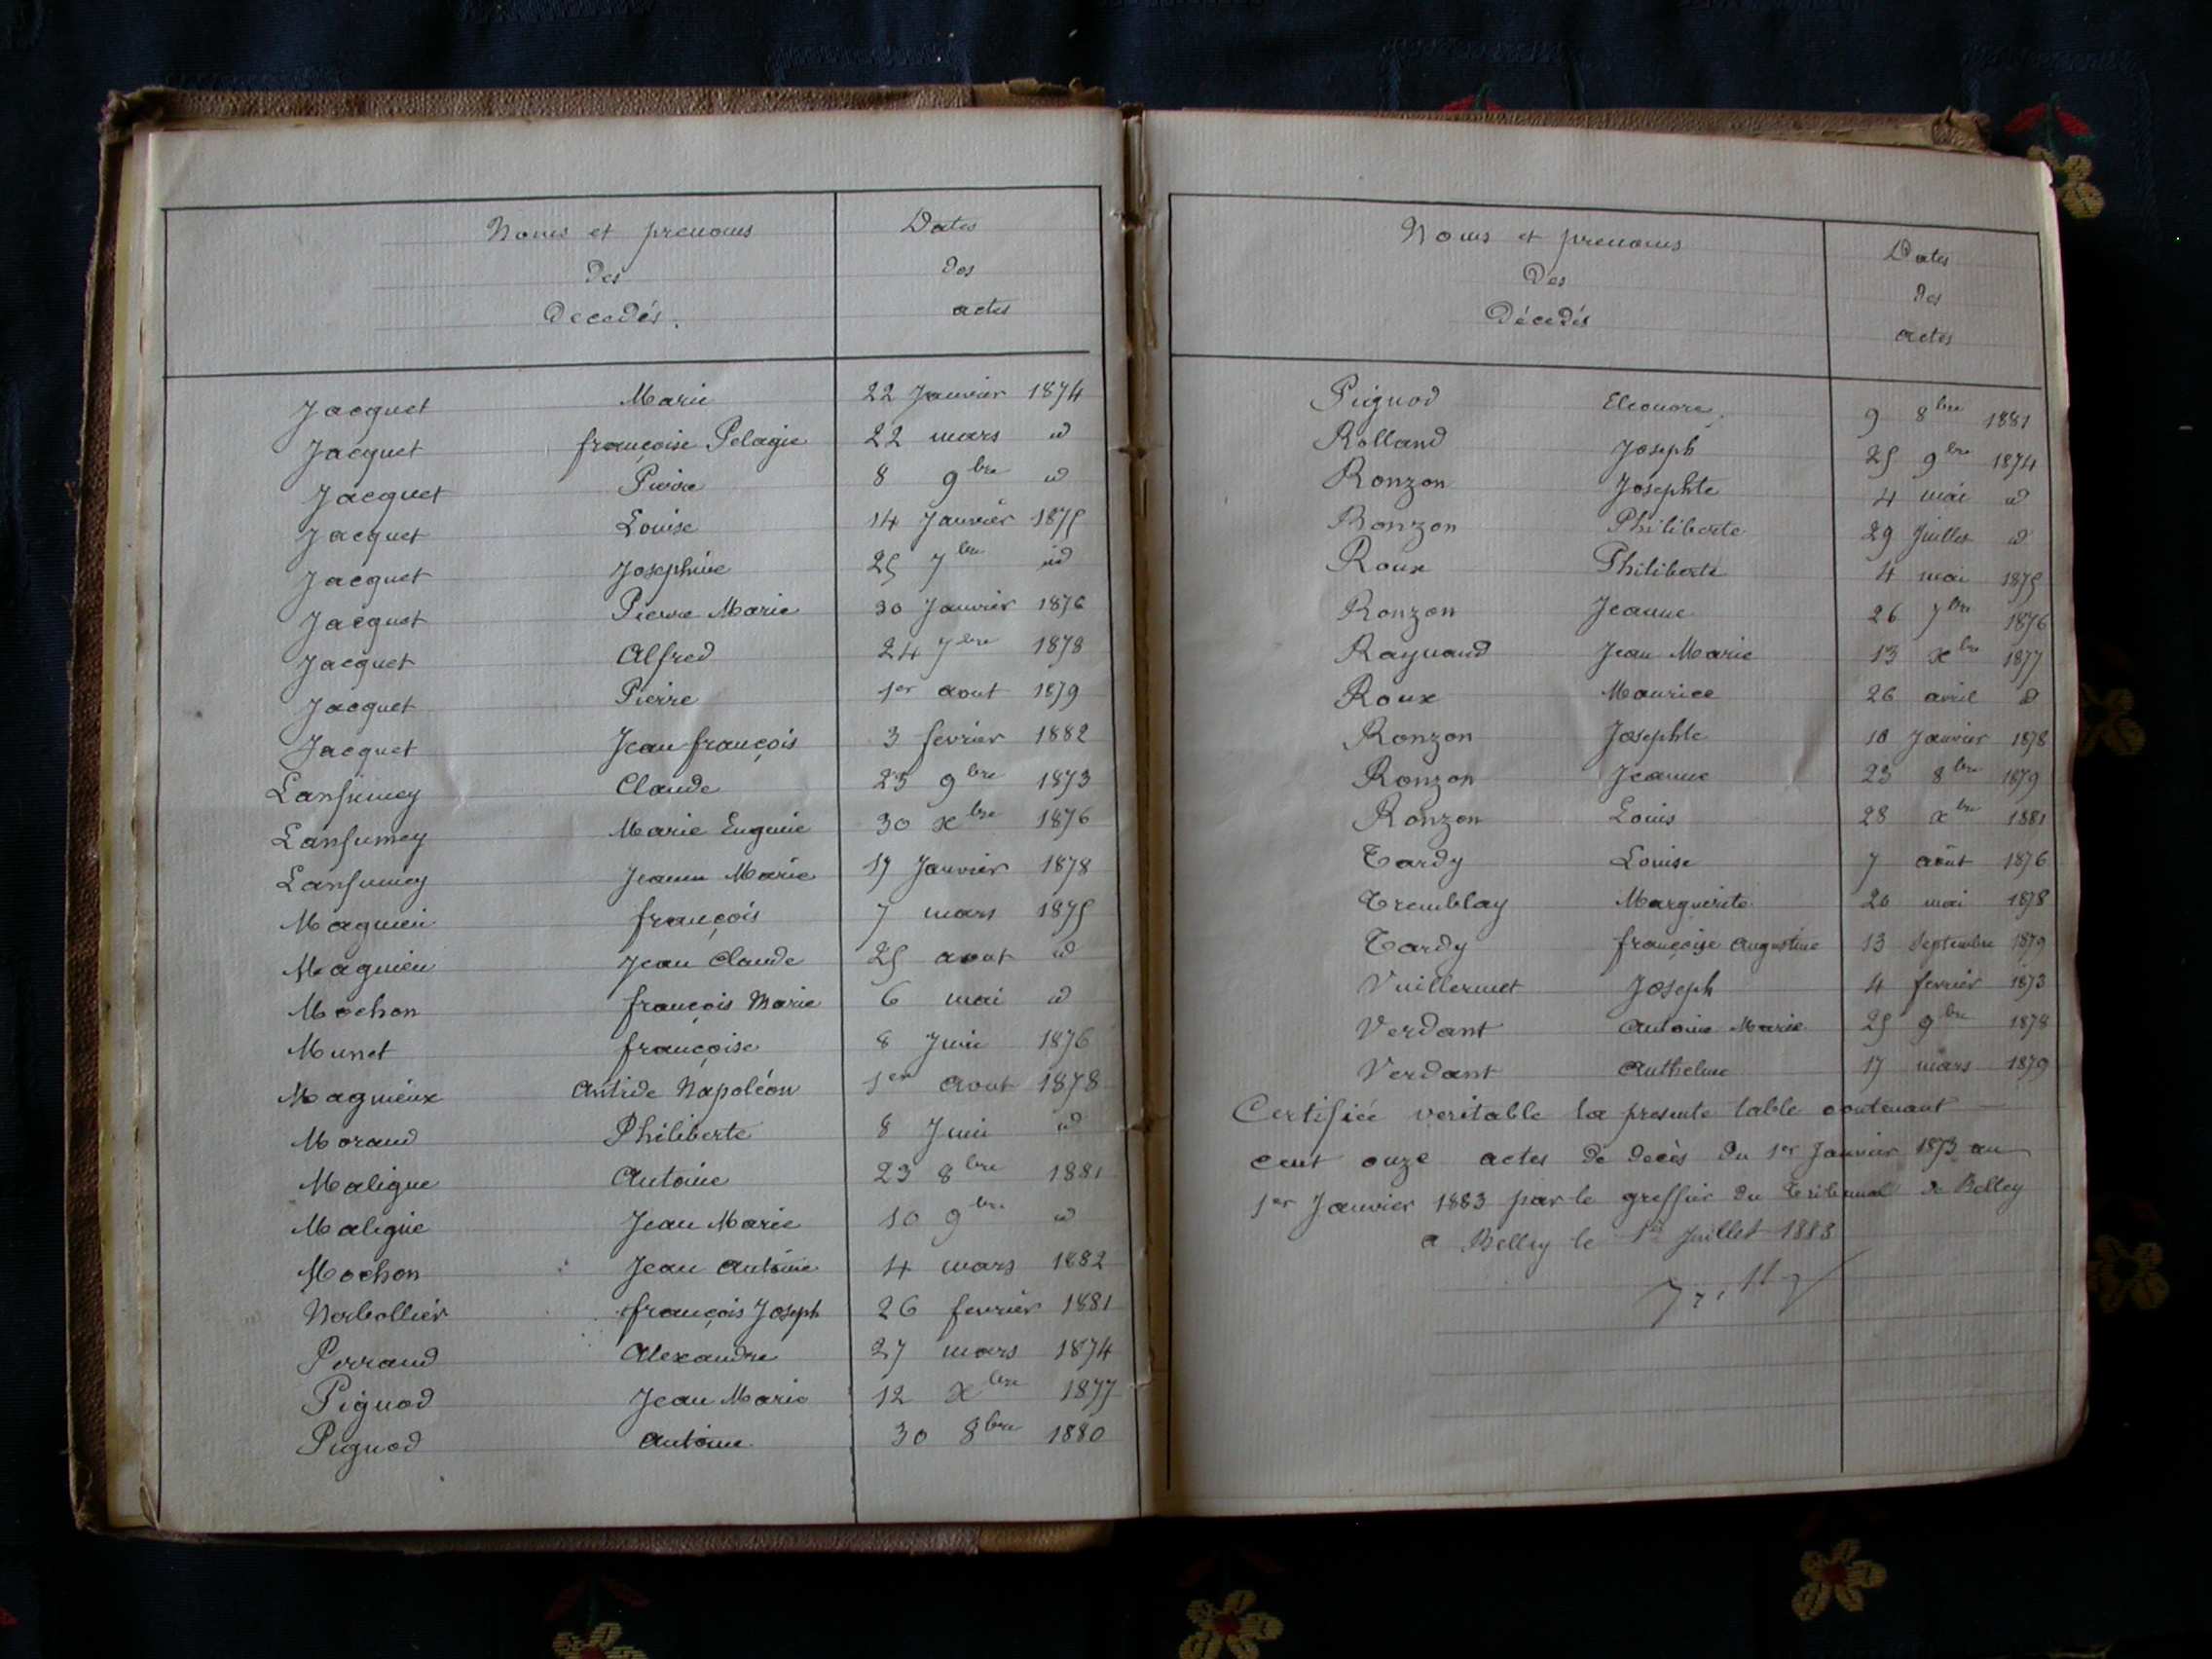 Noms et prenoms
des
Décédés.
Dates
des
actes
Jacquet Marie 22 Janvier 1874
Jacquet françoise Pelagie 22 mars id
Jacquet Pierre 8 9bre id
Jacquet Louise 14 Janvier 1875
Jacquet Josephine 25 7bre id
Jacquet Pierre Marie 30 Janvier 1876
Jacquet Alfred 24 7bre 1878
Jacquet Pierre 1er aout 1879
Jacquet Jean françois 3 fevrier 1882
Lanfumey Claude 25 9bre 1873
Lanfumey Marie Eugenie 30 xbre 1876
Lanfumey Jeanne Marie 17 Janvier 1878
Magnien françois 7 mars 1875
Magnien Jean Claude 25 aout id
Mochon françois Marie 6 mai id
Munet françoise 8 Juin 1876
Magnieux Antide Napoléon 1er Aout 1878
Morand Philiberte 8 Juin id
Maligne Antoine 23 8bre 1881
Maligne Jean Marie 10 9bre id
Mochon Jean Antoine 14 mars 1882
Norbollier françois Joseph 26 fevrier 1881
Perraud Alexandre 27 mars 1874
Pignod Jean Marie 12 xbre 1877
Pignod Antoine 30 8bre 1880
Noms et prenoms
Des
Décédés
Dates
des
actes
Pignod Eleonore. 9 8bre 1881
Rolland Joseph 25 9bre 1874
Ronzon Josephte 4 mai id
Ronzon Philiberte 29 Juillet id
Roux Philiberte 4 mai 1875
Ronzon Jeanne 26 7bre 1876
Raynaud Jean Marie 13 xbre 1877
Roux Maurice 26 avril id
Ronzon Josephte 10 Janvier 1878
Ronzon Jeanne 23 8bre 1879
Ronzon Louis 28 xbre 1881
Tardy Louise 7 août 1876
Tremblay Marguerite 20 mai 1878
Tardy françoise Augustine 13 Septembre 1879
Vuillermet Joseph 4 fevrier 1873
Verdant Antoine Marie 25 9bre 1878
Verdant Anthelme 17 mars 1879
Certifiée veritable la presente table contenant
cent onze actes de decès du 1er Janvier 1873 au
1er Janvier 1883 par le greffier du Tribunal de Belley
a Belley le Juillet 1883